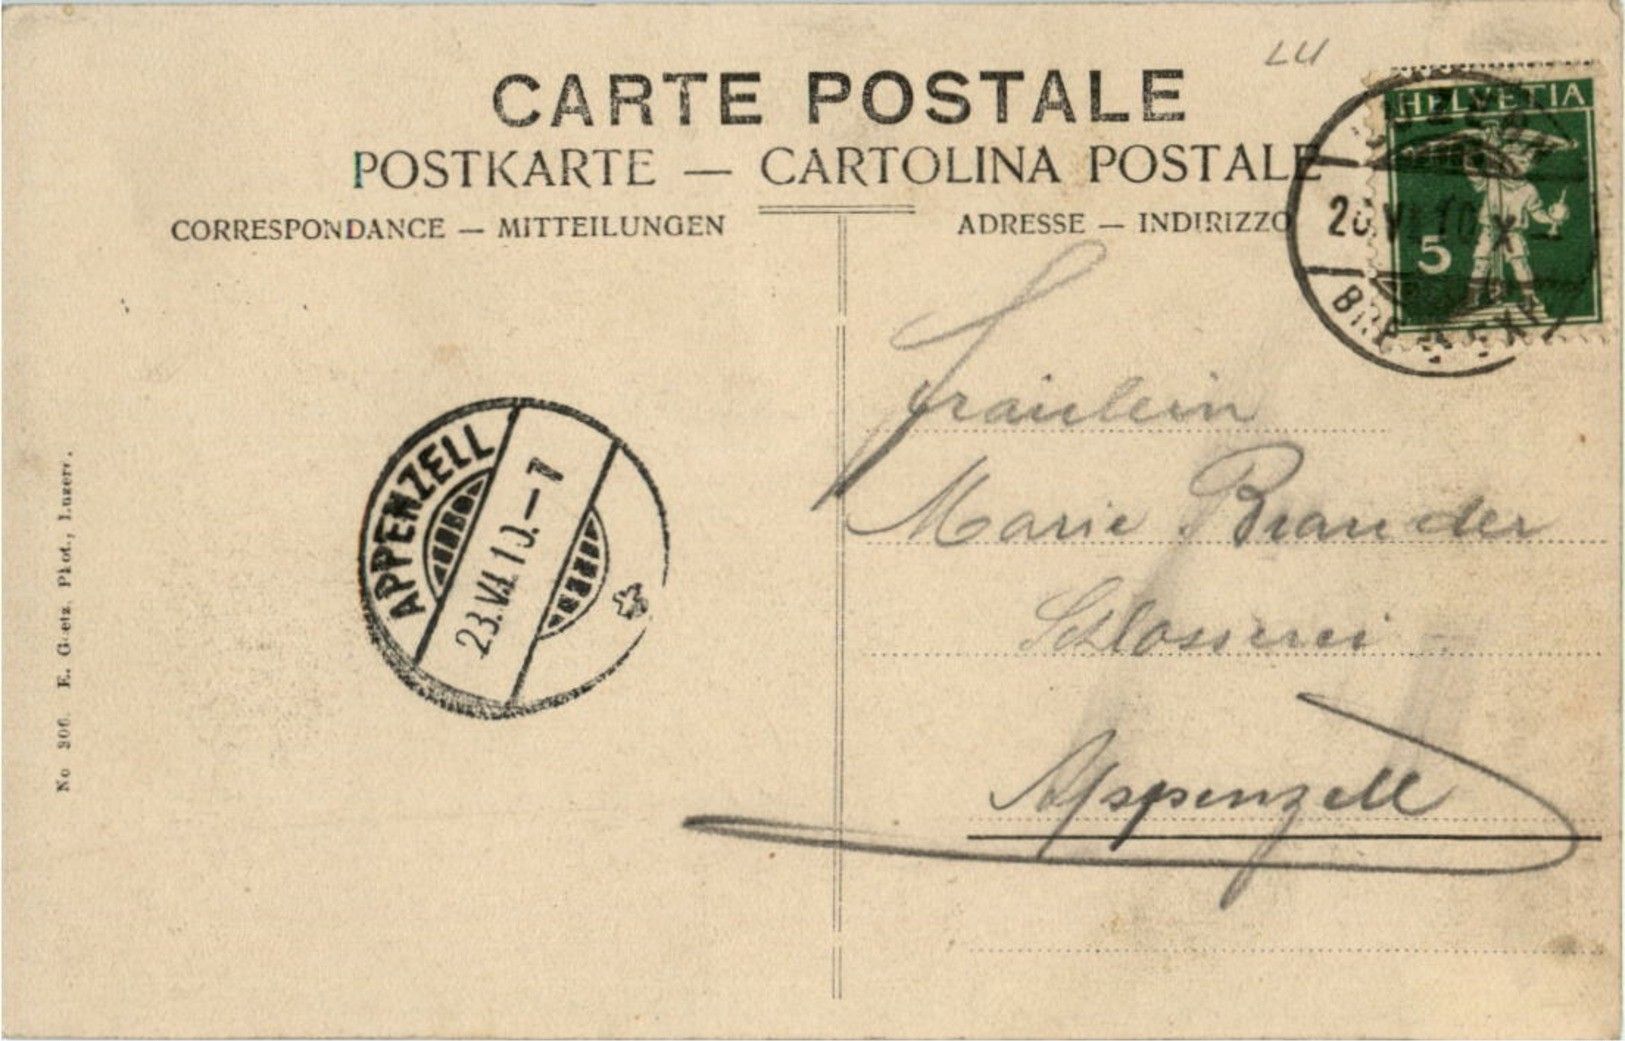 LU
CARTE POSTALE
POSTKARTE — CARTOLINA POSTALE
CORRESPONDANCE — MITTEILUNGEN
ADRESSE — INDIRIZZO
HELVETIA
5
LUZERN
VI.10.X
APPENZELL
23.VI.10.—7
Fräulein
Marie Brander
Schlosserei
Appenzell
E. Goetz. Phot., Luzern.
No